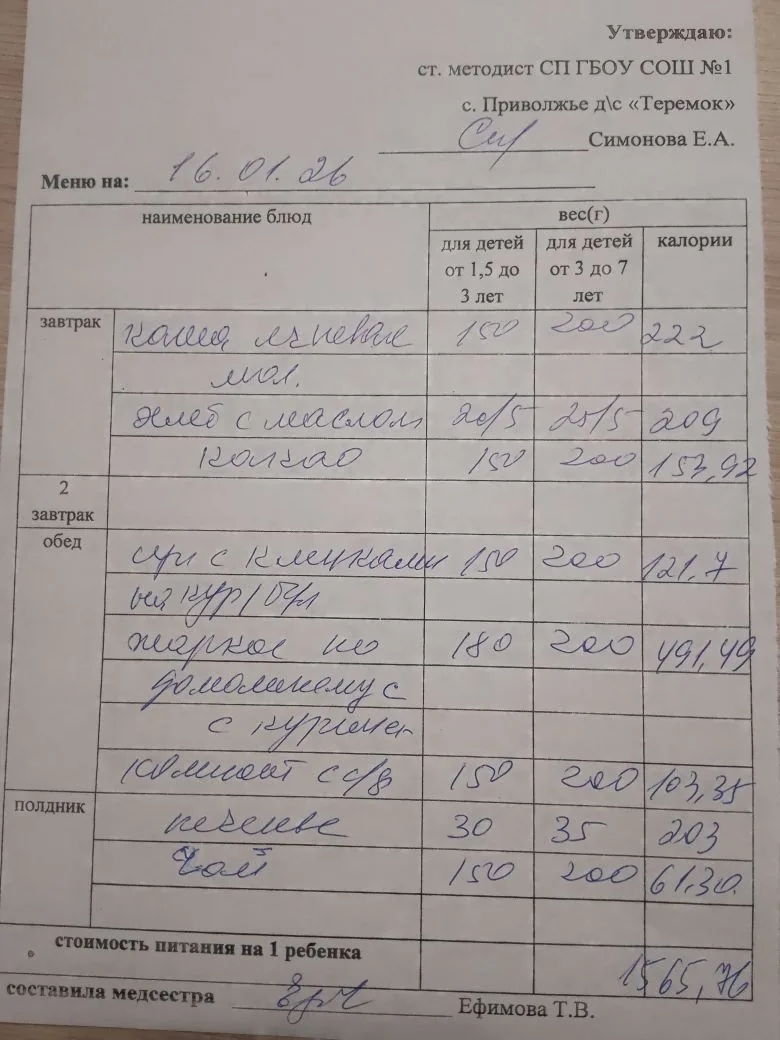 Утверждаю:
ст. методист СП ГБОУ СОШ №1
с. Приволжье д\с «Теремок»
Симонова Е.А.
Меню на: 16.01.26
наименование блюд вес(г)
для детей от 1,5 до 3 лет для детей от 3 до 7 лет калории
завтрак каша ячневая 150 200 222
мол.
хлеб с маслом 20/5 25/5 209
какао 150 200 153,92
2 завтрак
обед суп с клецками 150 200 121,7
на кур/бул
жаркое по 180 200 491,49
домашнему с
с курицей
компот с с/ф 150 200 103,35
полдник печенье 30 35 203
чай 150 200 61,30
стоимость питания на 1 ребенка 1565,76
составила медсестра Ефимова Т.В.